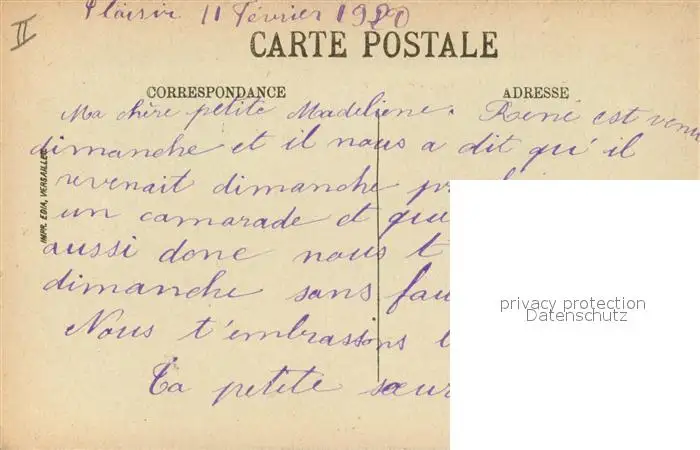 II
Plaisir 11 Février 1920
CARTE POSTALE
CORRESPONDANCE
ADRESSE
Ma chère petite Madeliene. René est venu
dimanche et il nous a dit qu'il
revenait dimanche
un camarade et que
aussi donc nous t
dimanche sans fau
Nous t'embrassons
Ta petite sœur
IMPR. EDIA, VERSAILLES
privacy protection
Datenschutz